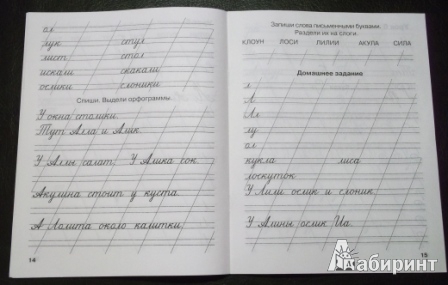 ал
лук стул
лист стол
искали скакали
ослики слоники
Спиши. Выдели орфограммы.
У окна столики.
Тут Алла и Алик.
У Аллы салат. У Алика сок.
Акулина стоит у куста.
А Лолита около калитки.
14
Запиши слова письменными буквами.
Раздели их на слоги.
КЛОУН ЛОСИ ЛИЛИИ АКУЛА СИЛА
Домашнее задание
л
Л
Ал
лу
ол
кукла лиса
лоскуток
У Лили ослик и слоник.
У Алины ослик Иа.
15
Лабиринт